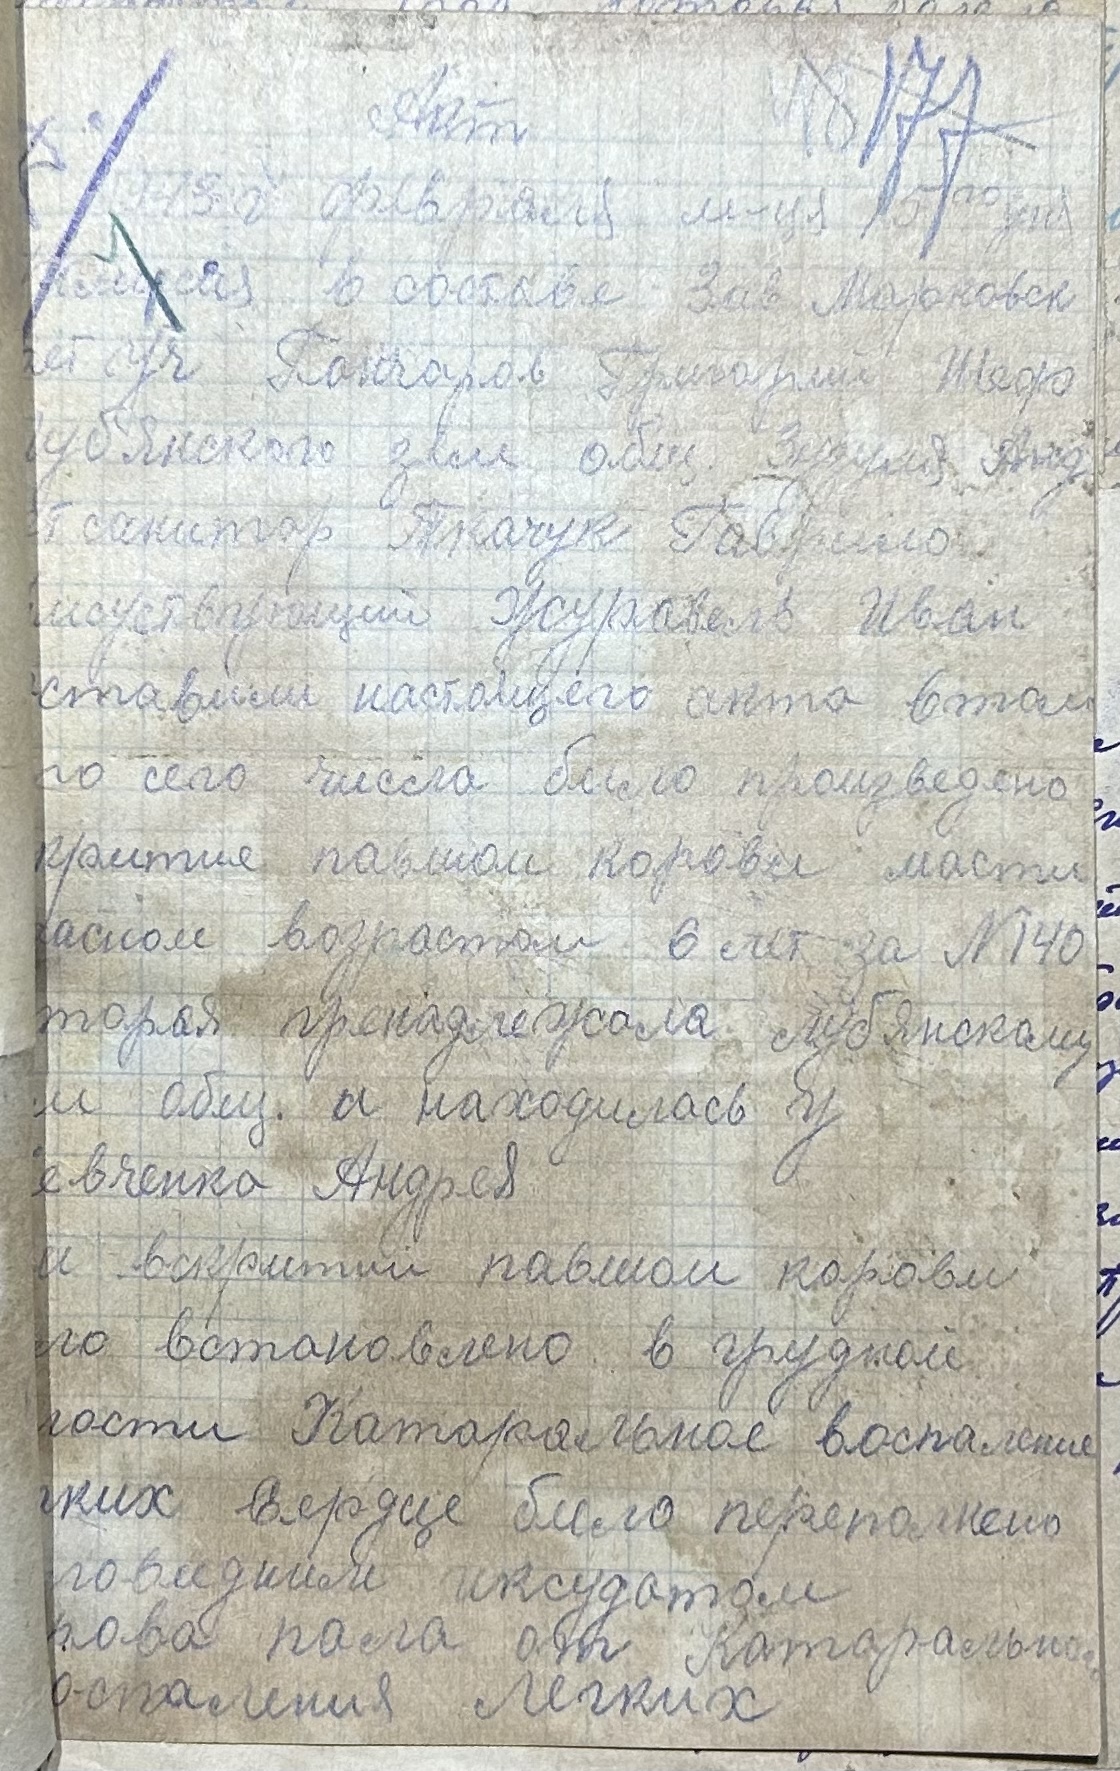 Акт 177
1943 г февраля м-ця 5го дня
в составе Зав Марковск
вет уч Гончаров Григорий Шеф
лубянского зем общ. Зозуля Анд
ет санитар Ткачук Гаврило
исуствующий Журавель Иван
ставили настоящего акта втом
го сего числа било произведено
критие павшои корови масти
расном возрастом 6 лет за №140
торая пренадлежала лубянскому
м общ. а находилась у
евченка Андрея
и вскритии павшои корови
ло встановлено в грудной
лости Катаральное воспаление
гких Сердце било переполнено
говидним иксудатом
рова пала от Катарально
оспаления Легких